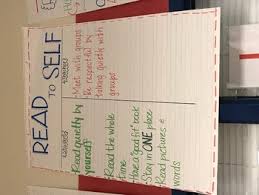 READ to SELF
students
Read quietly by
yourself
Read the whole
time
Have a "good fit" book
Stay in ONE place
Read pictures &
words
Meet with groups
Be respectful by
talking quietly with
groups